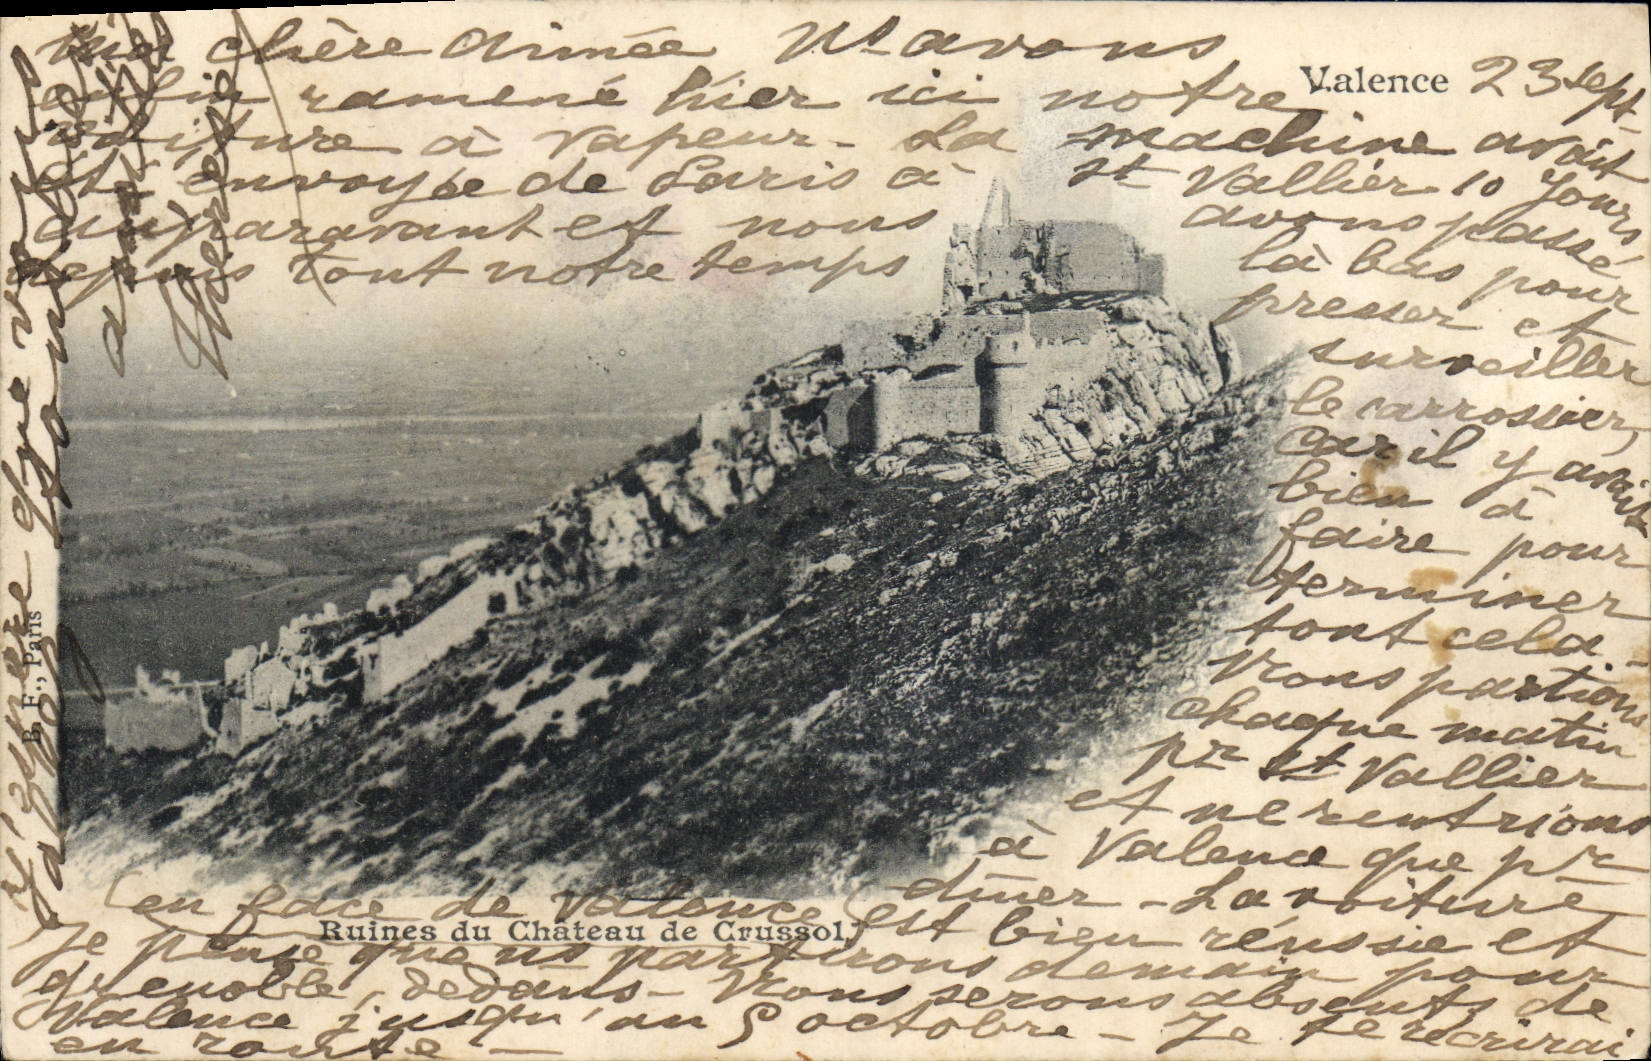 Valence 23 sept.
chère Aimée Ns avons
enfin ramené hier ici notre
voiture à vapeur - La machine avait
été envoyée de Paris à St Vallier 10 jours
auparavant et nous avons passé
depuis tout notre temps là bas pour
presser et
surveiller
le carrossier,
car il y avait
bien à
faire pour
terminer
tout cela -
Nous partions
chaque matin
pr St Vallier
et ne rentrions
à Valence que pr
dîner - La voiture
est bien réussie et
(en face de Valence)
Ruines du Château de Crussol,
je pense que ns partirons demain pour
grenoble, dedans - Nous serons absents de
Valence jusqu'au 5 octobre - Je te récrirai
en route -
B. F., Paris
J'espère que